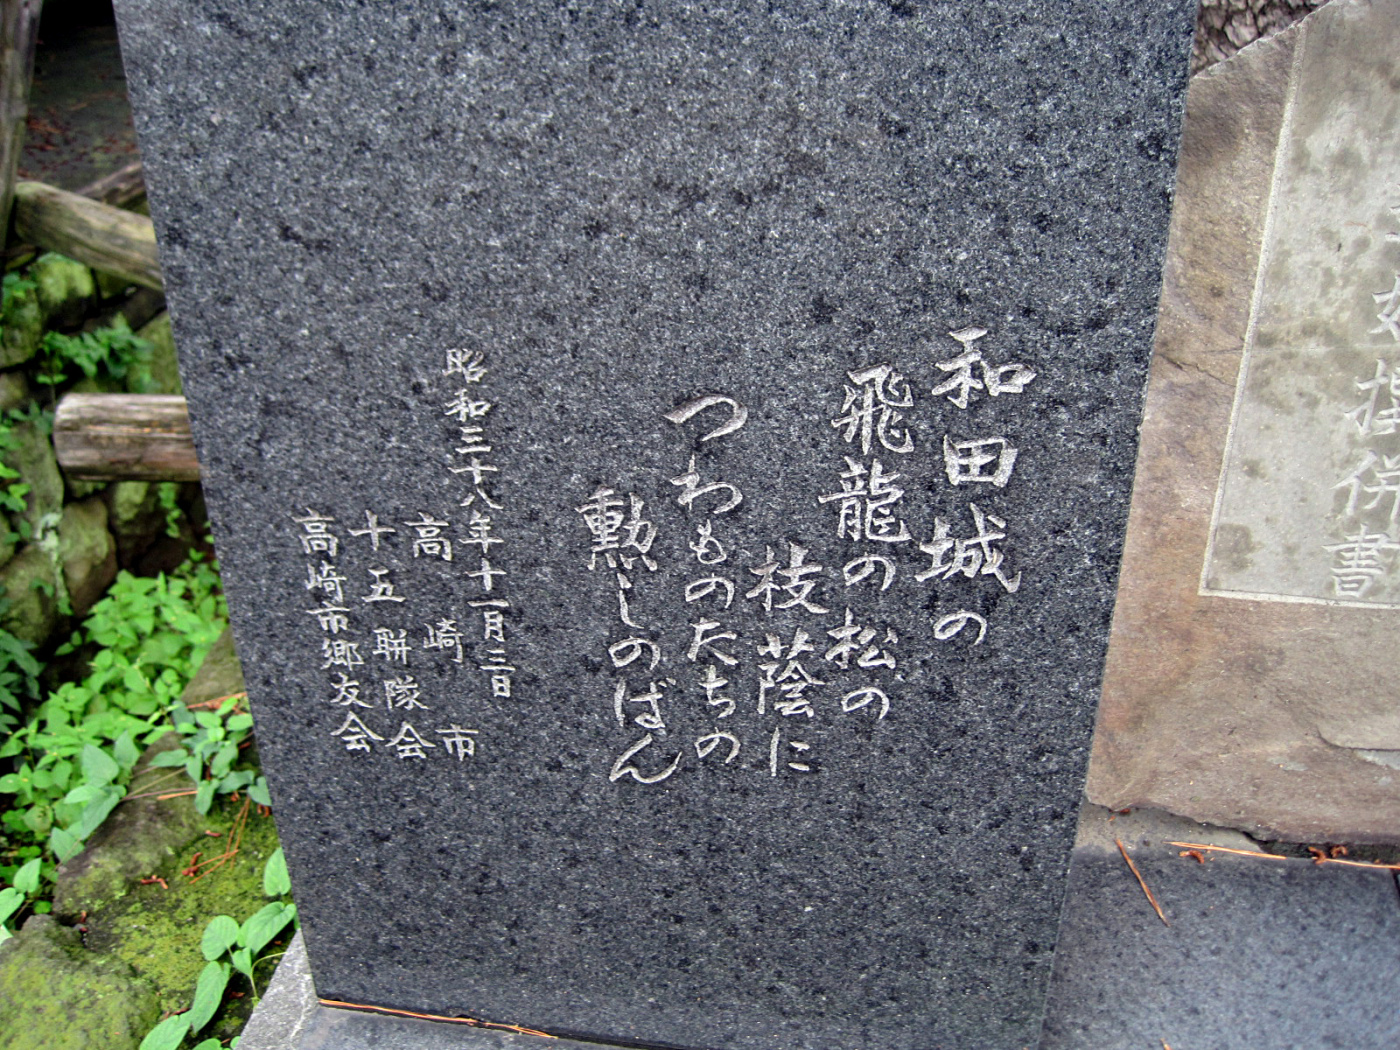 和田城の
飛龍の松の
枝蔭に
つわものたちの
勲しのばん
昭和三十八年十一月三日
高崎市
十五聯隊会
高崎市郷友会
併書